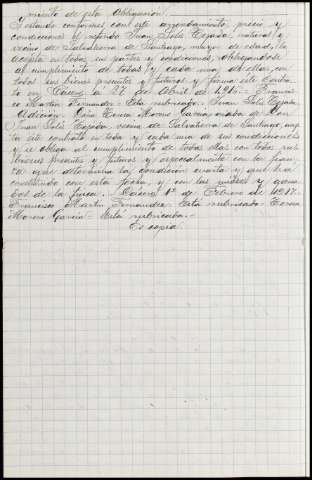 y miento de esta obligacion.
Y estando conforme con este arrendamiento, precio y
condiciones el referido Juan Solis Espada, natural y
vecino de Salvatierra de Santiago, mayor de edad, lo
acepta en todas sus partes y condiciones, obligandose
al cumplimiento de todas y cada una de ellas, con
todos sus bienes presentes y futuros y firma este contra
to en Caceres á 27 de Abril de 1915. Francis
co Martin Fernandez. Esta rubricado. Juan Solis Espada.
Adicion. Doña Teresa Moreno Garcia, viuda de Don
Juan Solis Espada, vecina de Salvatierra de Santiago, acep
ta este contrato en todas y cada una de sus condiciones
y se obliga al cumplimiento de todas ellas con todos sus
bienes presentes y futuros y especialmente con la fian
za que determina la condicion cuarta y que
con esta fecha, y con las mieses y gana
dos de la finca. Caceres 1º de Febrero de 1917.
Francisco Martin Fernandez. Esta rubricado. Teresa
Moreno Garcia. Esta rubricado.
Es copia.